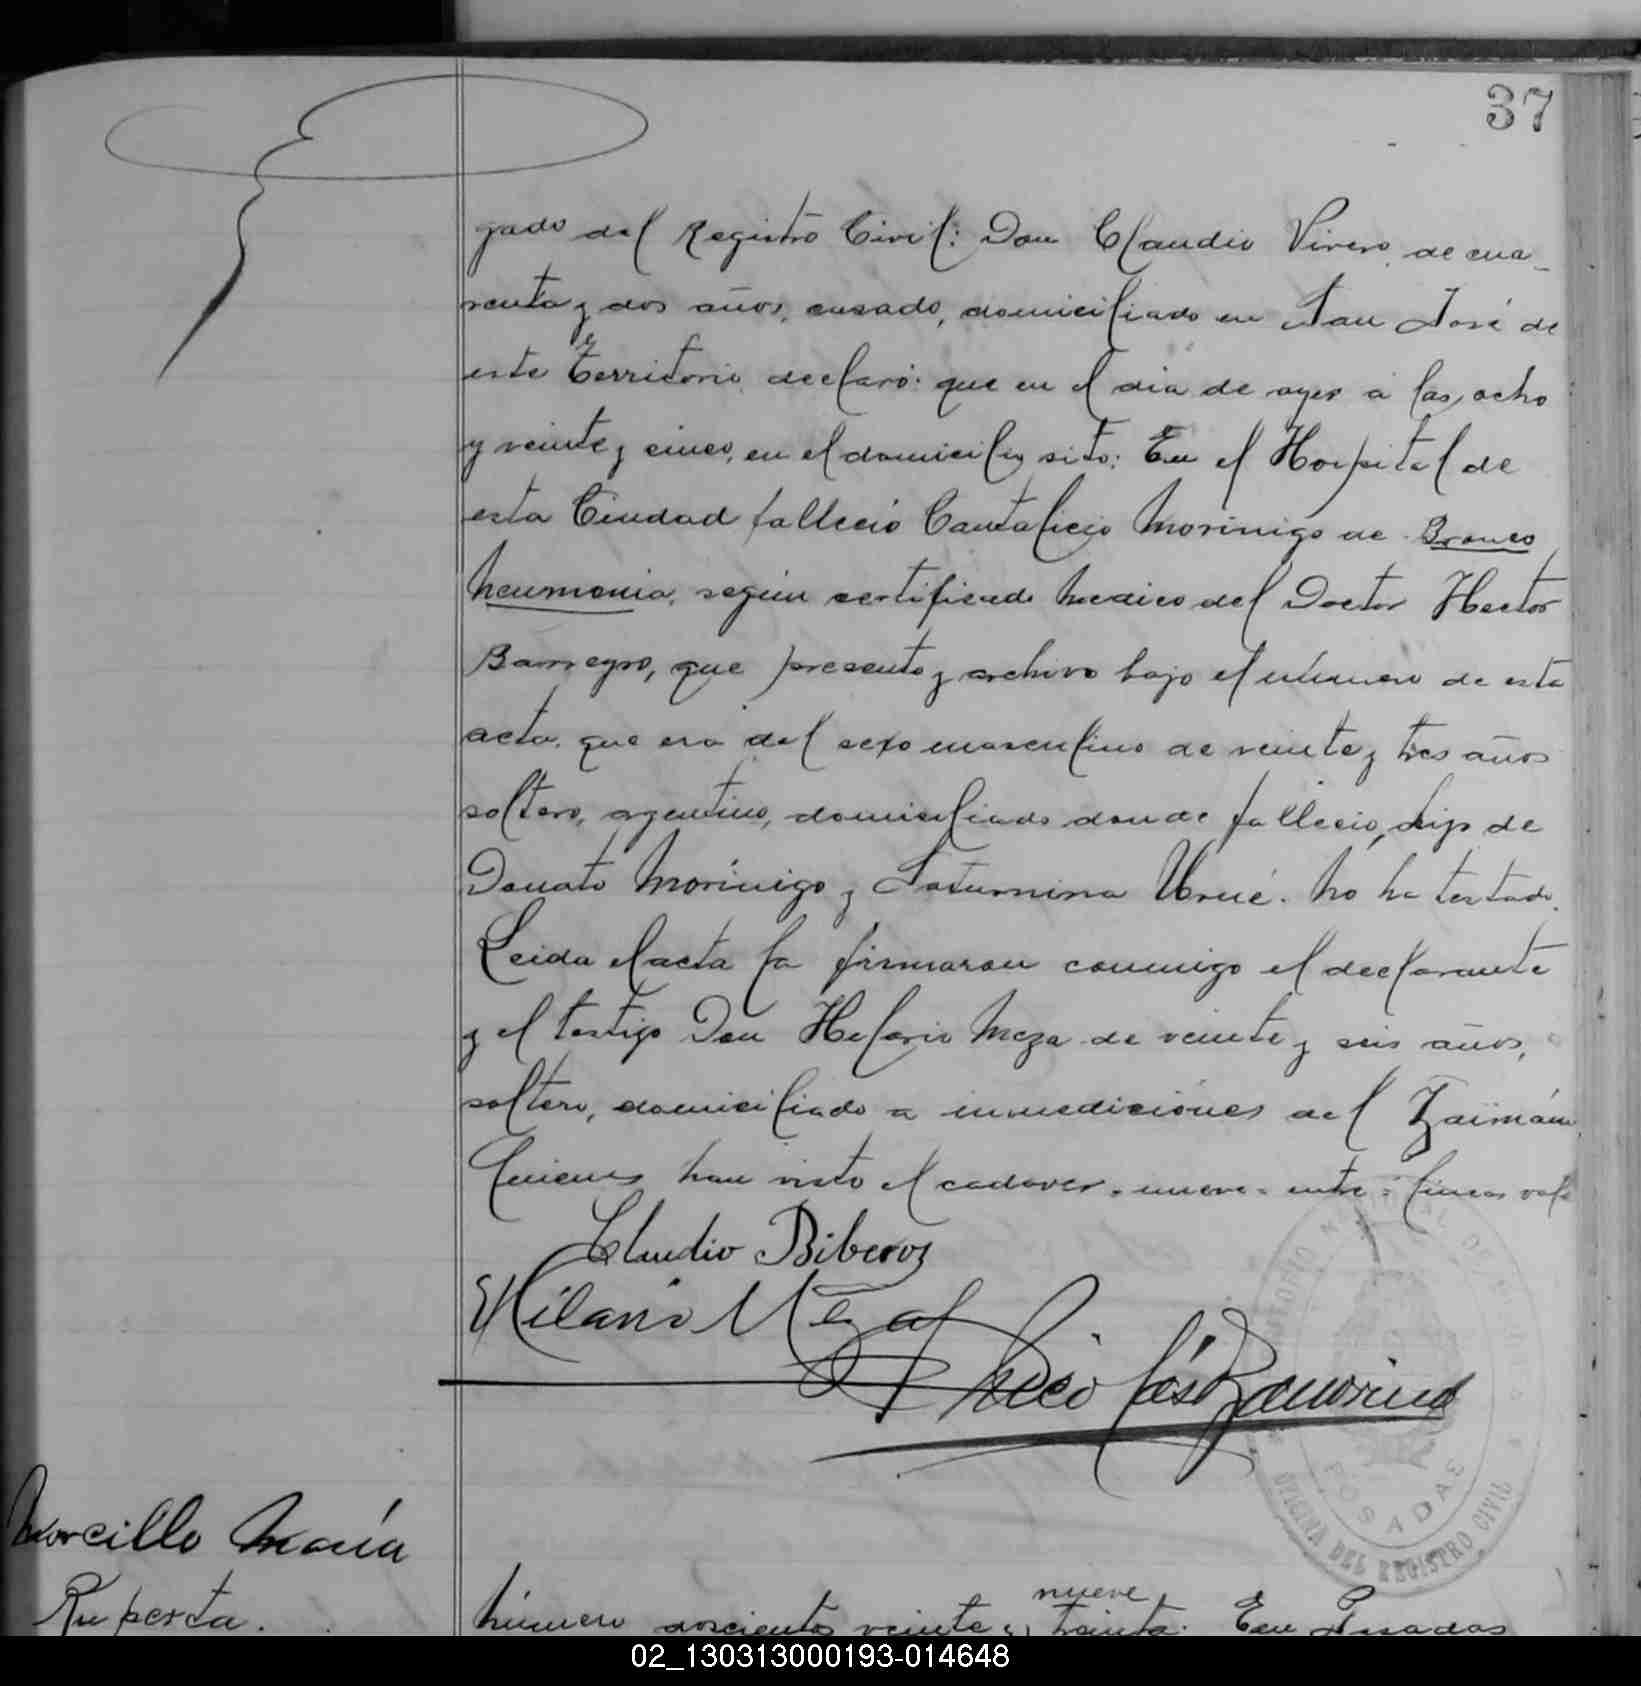 37
gado del Registro Civil: Don Claudio Vivero, de cua-
renta y dos años, casado, domiciliado en San José de
este Territorio, declaró: que en el día de ayer a las ocho
y veinte y cinco, en el domicilio sito: En el Hospital de
esta Ciudad falleció Cantalicio Morinigo de Bronco
neumonia, según certificado medico del Doctor Hector
Barreyro, que presento y archivo bajo el número de esta
acta, que era del sexo masculino de veinte y tres años
soltero, argentino, domiciliado donde falleció, hijo de
Donato Morinigo y Saturnina Urué. No ha testado.
Leida el acta la firmaron conmigo el declarante
y el testigo Don Helario Meza de veinte y seis años,
soltero, domiciliado a inmediciónes del Zaimán
Quienes han visto el cadaver. nueve. entre: lineas vale
Claudio Biberos
Hilario Meza
Nicolás
TERRITORIO NACIONAL DE
POSADAS
OFICINA DEL REGISTRO CIVIL
Morcillo María
Ruperta.
nueve
Número doscientos veinte y treinta. En Posadas
02_130313000193-014648